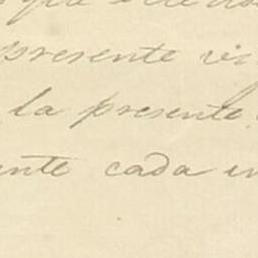 presente vi
la presente
ente cada in